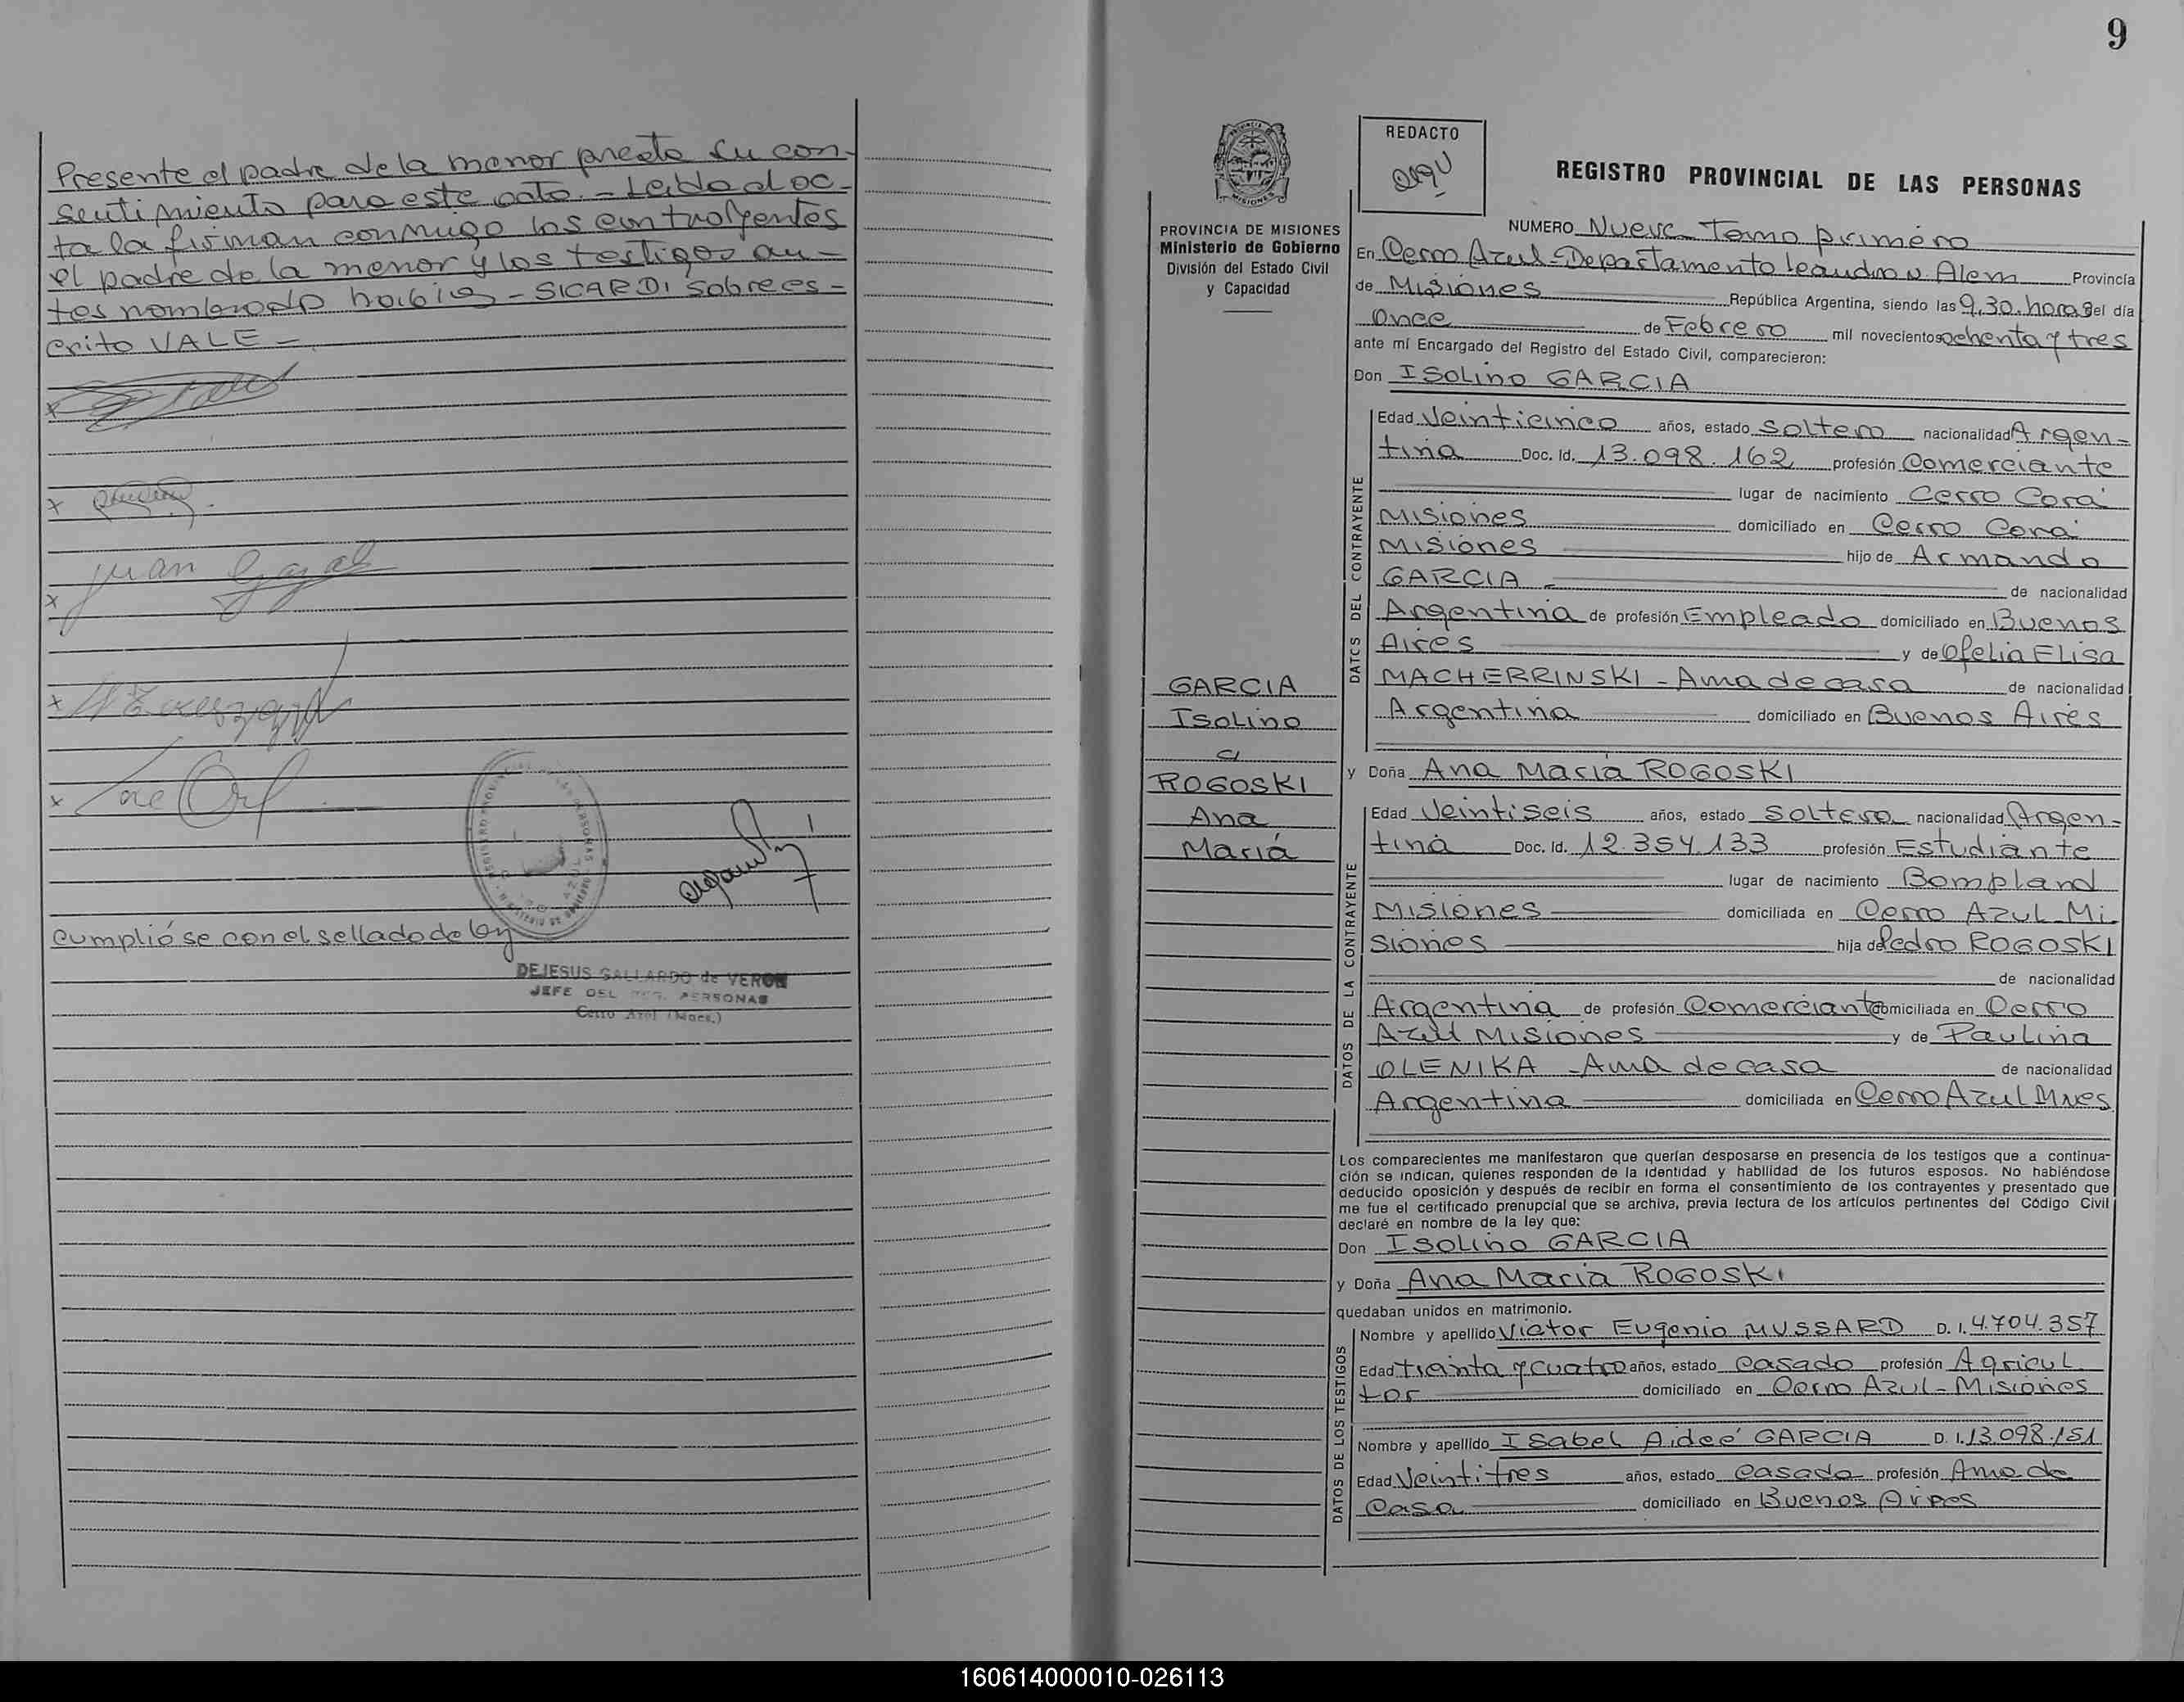 Presente el padre de la menor presta su con-
sentimiento para este acto. - Leida el ac-
ta la firman conmigo los contrayentes
el padre de la menor y los testigos an-
tes nombrado - SICARDI sobrees-
crito VALE -
x
x
Juan
x
x
x
cumplióse con el sellado de ley
DEJESUS GALLARDO de VERON
JEFE DEL REG. PERSONAS
Cerro Azul (Mnes.)
9
PROVINCIA DE MISIONES
Ministerio de Gobierno
División del Estado Civil
y Capacidad
GARCIA
Isolino
c/
ROGOSKI
Ana
María
REDACTO
REGISTRO PROVINCIAL DE LAS PERSONAS
NUMERO Nueve - Tomo primero
En Cerro Azul - Departamento Leandro N. Alem Provincia
de Misiones República Argentina, siendo las 9,30 horas del día
once de Febrero mil novecientos ochenta y tres
ante mí Encargado del Registro del Estado Civil, comparecieron:
Don Isolino GARCIA
DATOS DEL CONTRAYENTE
Edad Veinticinco años, estado soltero nacionalidad Argen-
tina Doc. Id. 13.098.162 profesión Comerciante
lugar de nacimiento Cerro Corá
Misiones domiciliado en Cerro Corá
Misiones hijo de Armando
GARCIA - de nacionalidad
Argentina de profesión Empleado domiciliado en Buenos
Aires y de Ofelia Elisa
MACHERRINSKI - Ama de casa de nacionalidad
Argentina domiciliado en Buenos Aires
y Doña Ana María ROGOSKI
DATOS DE LA CONTRAYENTE
Edad Veintiseis años, estado soltera nacionalidad Argen-
tina Doc. Id. 12.354.133 profesión Estudiante
lugar de nacimiento Bompland
Misiones domiciliada en Cerro Azul Mi
siones hija de Pedro ROGOSKI
de nacionalidad
Argentina de profesión Comerciante domiciliada en Cerro
Azul Misiones y de Paulina
OLENIKA - Ama de casa de nacionalidad
Argentina domiciliada en Cerro Azul Mnes
Los comparecientes me manifestaron que querían desposarse en presencia de los testigos que a continua-
ción se indican, quienes responden de la identidad y habilidad de los futuros esposos. No habiéndose
deducido oposición y después de recibir en forma el consentimiento de los contrayentes y presentado que
me fue el certificado prenupcial que se archiva, previa lectura de los artículos pertinentes del Código Civil
declaré en nombre de la ley que:
Don Isolino GARCIA
y Doña Ana María ROGOSKI
quedaban unidos en matrimonio.
DATOS DE LOS TESTIGOS
Nombre y apellido Victor Eugenio MUSSARD D. I. 4.704.357
Edad treinta y cuatro años, estado casado profesión Agricul
tor domiciliado en Cerro Azul - Misiones
Nombre y apellido Isabel Aideé GARCIA D. I. 13.098.151
Edad Veintitres años, estado casada profesión Ama de
Casa domiciliado en Buenos Aires
160614000010-026113